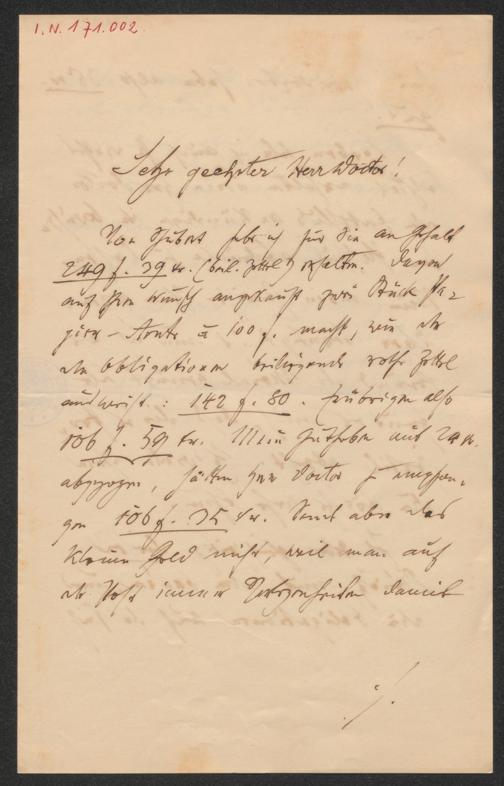 I.N. 171.002
Sehr geehrter Herr Doctor!
Von habe ich für Sie an Gehalt
249 f. 39 kr. (beil. Zettel) erhalten. Davon
auf Ihren Wunsch angekauft zwei Stück Pa-
pier-Rente à 100 f. macht, wie der
den Obligationen beiliegende rothe Zettel
ausweist: 142 f. 80. Erübrigen also
106 f. 59 kr. Mein Guthaben mit 24 kr.
abgezogen, hätten Herr Doctor zu empfan-
gen 106 f. 35 kr. Sende aber das
kleine Geld nicht, weil man auf
der Post immer damit
./.